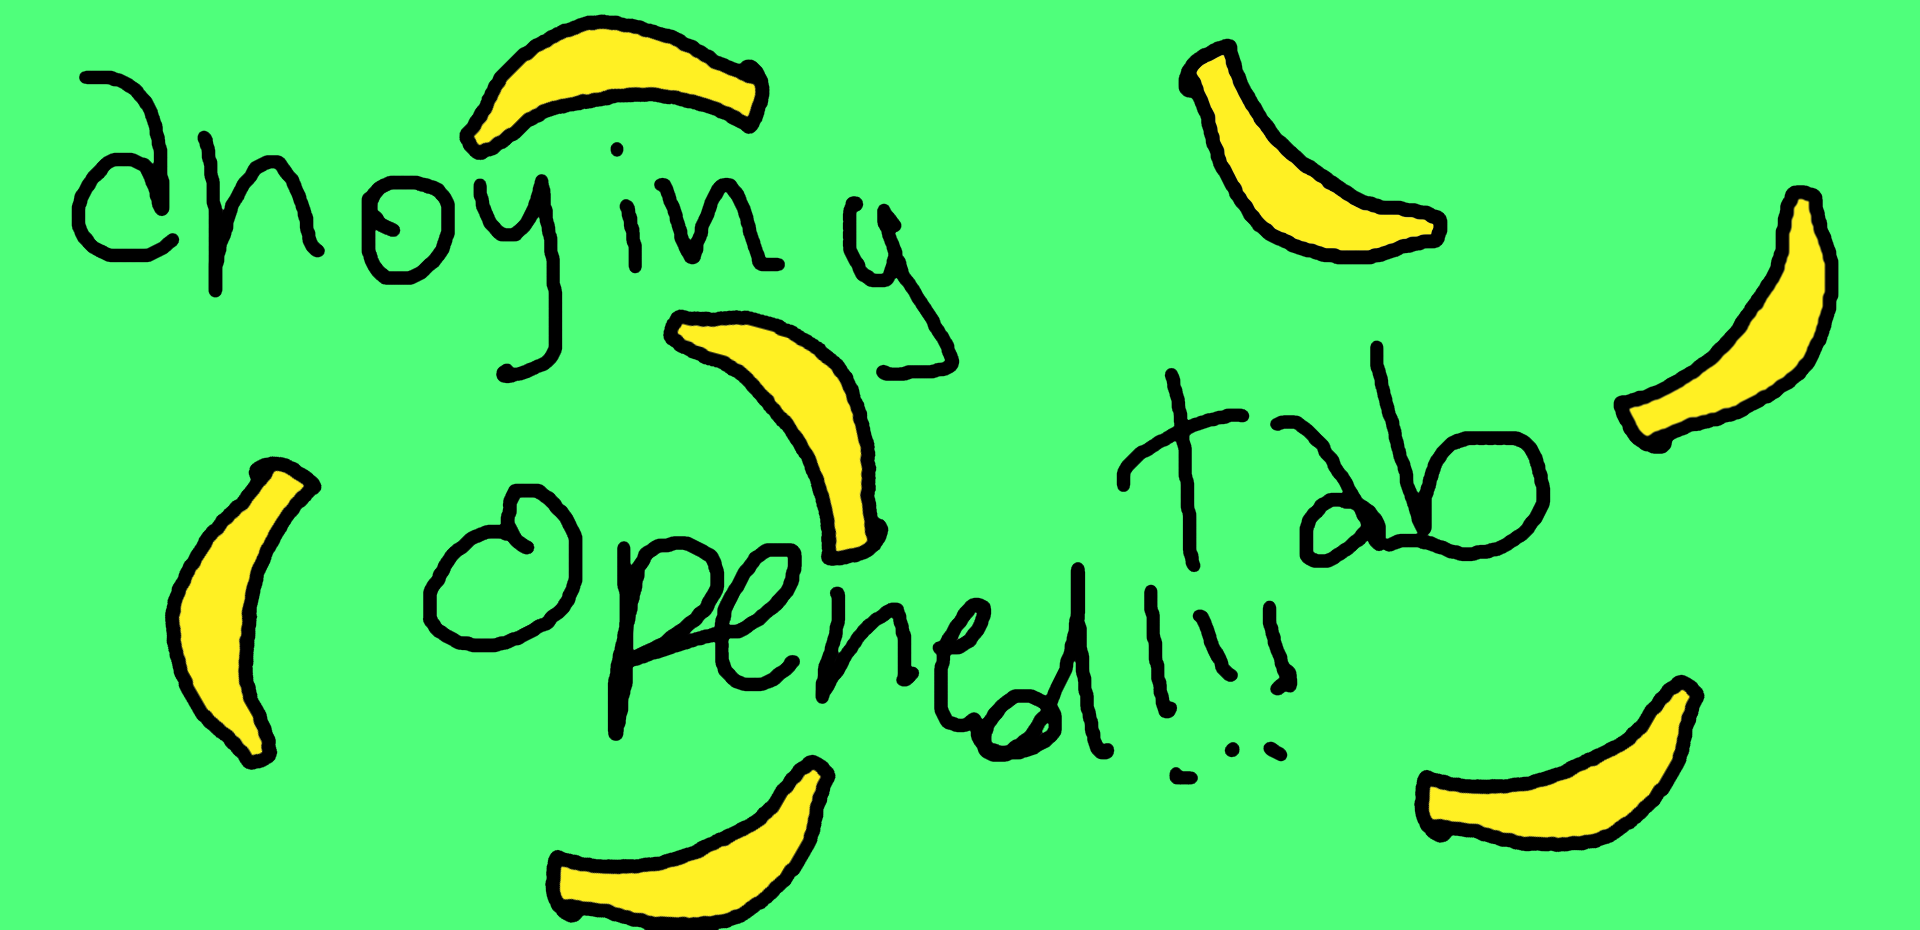 anoying
tab
opened!!!